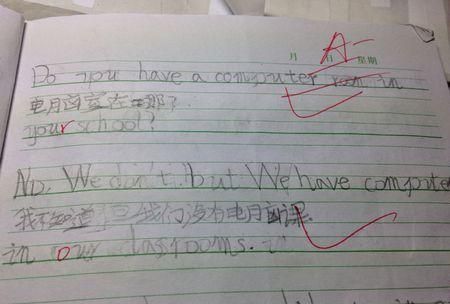 月 日 星期
A-
Do you have a computer room in
电脑室在那
your school?
No, We don't. but We have compute
我不知道 我们没有电脑课
in our classrooms. in